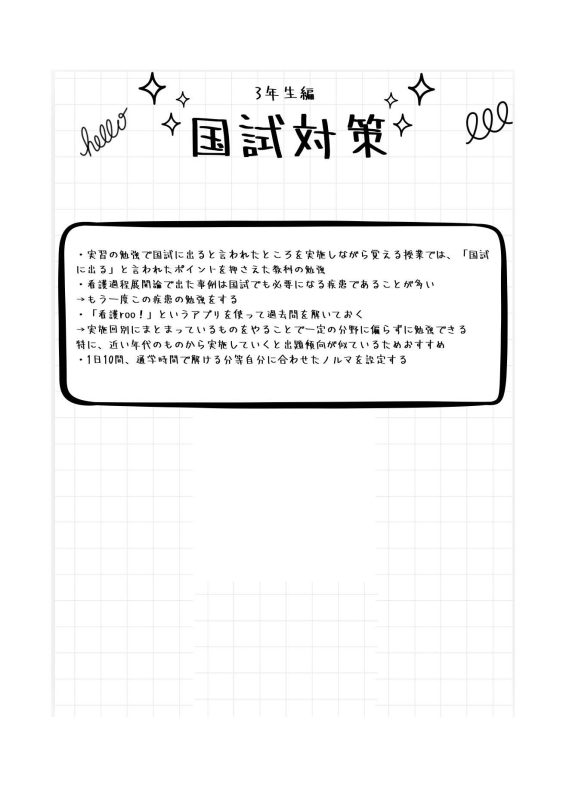 3年生編
hello
国試対策
・実習の勉強で国試に出ると言われたところを実施しながら覚える授業では、「国試
に出る」と言われたポイントを押さえた教科の勉強
・看護過程展開論で出た事例は国試でも必要になる疾患であることが多い
→もう一度この疾患の勉強をする
・「看護roo！」というアプリを使って過去問を解いておく
→実施回別にまとまっているものをやることで一定の分野に偏らずに勉強できる
特に、近い年代のものから実施していくと出題傾向が似ているためおすすめ
・1日10問、通学時間で解ける分等自分に合わせたノルマを設定する